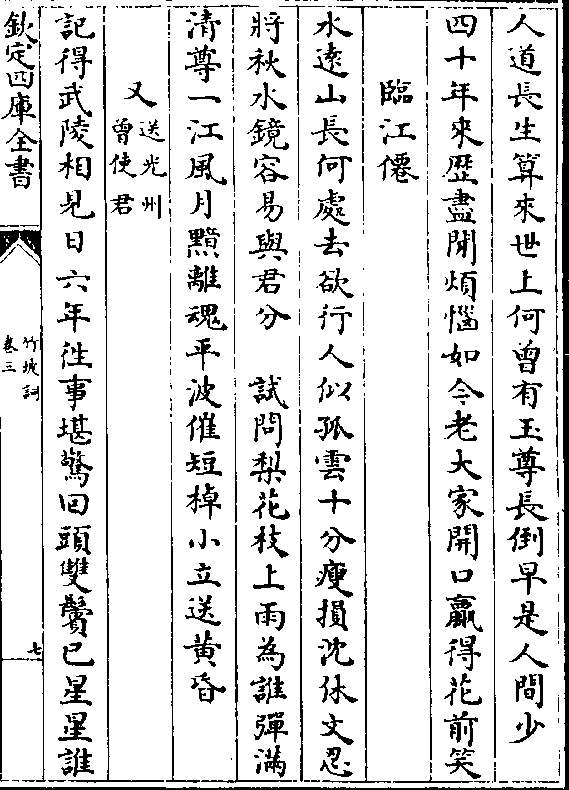 人道長生算來世上何曾有玉尊長倒早是人間少
四十年來歷盡閒煩惱如今老大家開口贏得花前笑
臨江僊
水遠山長何處去欲行人似孤雲十分瘦損沈休文忍
將秋水鏡容易與君分　試問梨花枝上雨為誰彈滿
清尊一江風月黯離魂平波催短棹小立送黄昏
又送光州曾使君
記得武陵相見日六年徃事堪驚回頭雙鬢已星星誰
欽定四庫全書
竹坡詞
卷三
七